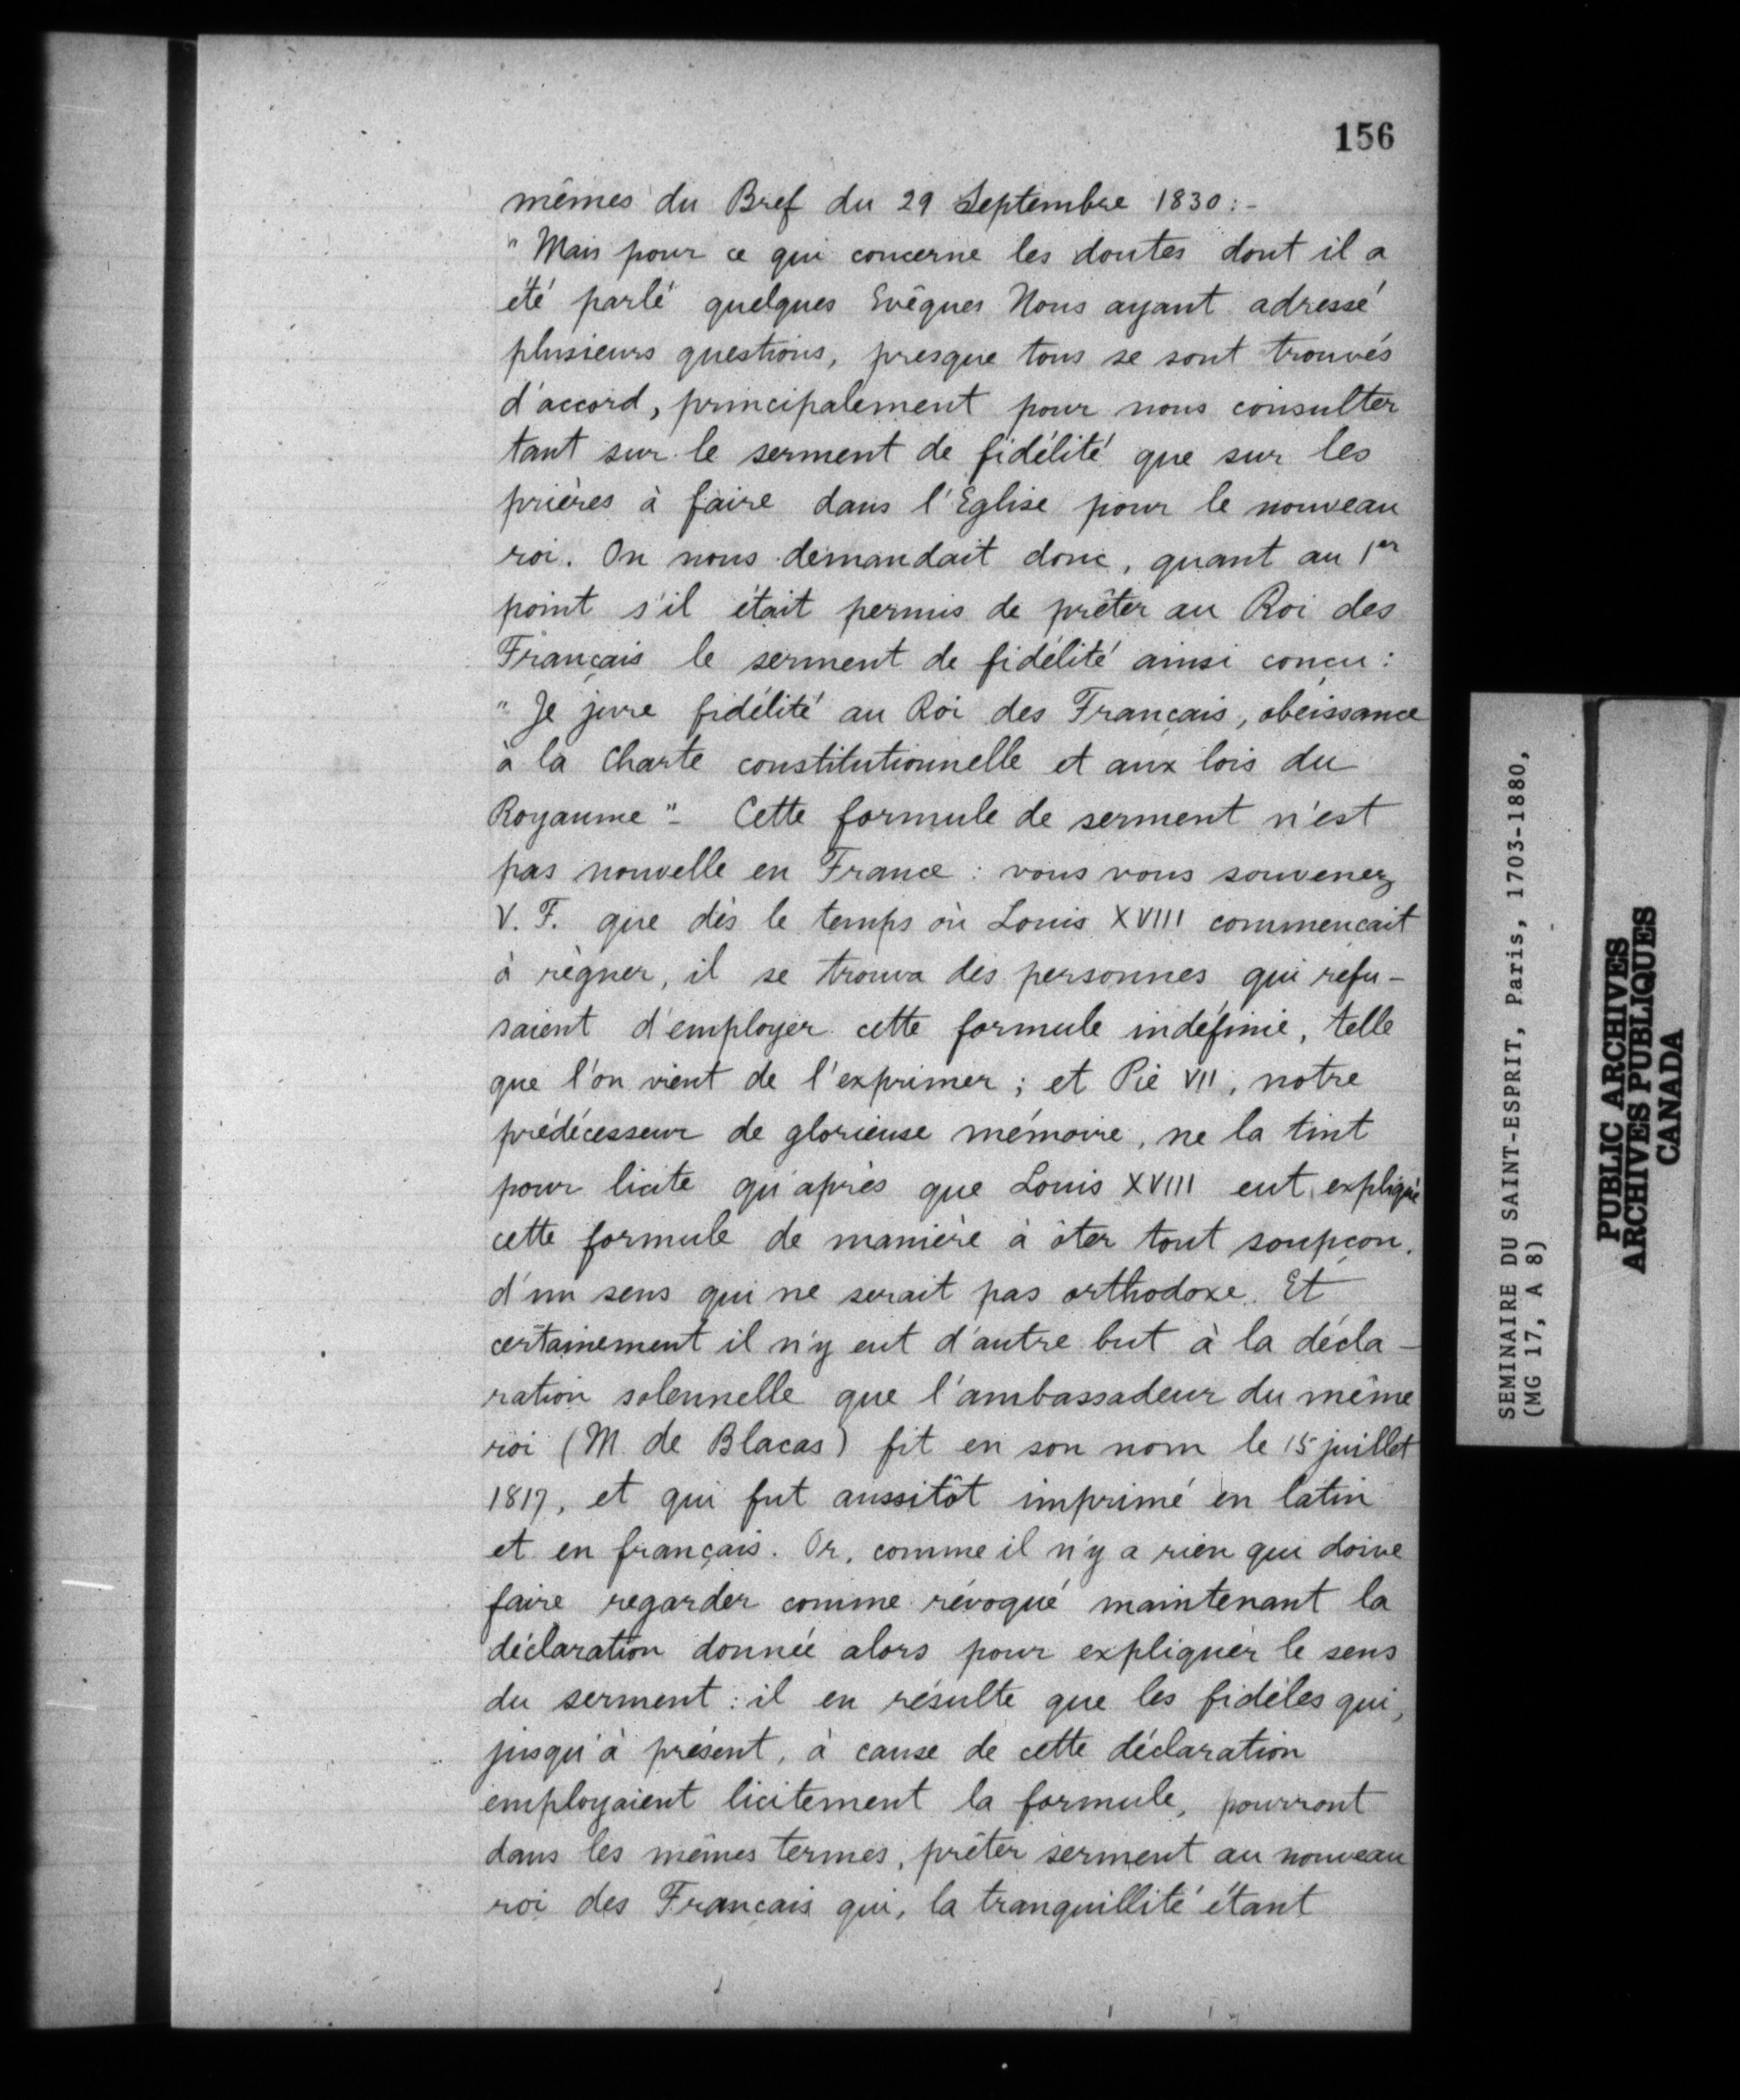 156
mêmes du Bref du 29 Septembre 1830:-
"Mais pour ce qui concerne les doutes dont il a
été parlé quelques Evêques Nous ayant adressé
plusieurs questions, presque tous se sont trouvés
d'accord, principalement pour nous consulter
tant sur le serment de fidélité que sur les
prières à faire dans l'Eglise pour le nouveau
roi. On nous demandait donc, quant au 1er
point s'il était permis de prêter au Roi des
Français le serment de fidélité ainsi conçu:
"Je jure fidélité au Roi des Français, obéissance
à la Charte constitutionnelle et aux lois du
Royaume"- Cette formule de serment n'est
pas nouvelle en France: vous vous souvenez
V. F. que dès le temps où Louis XVIII commençait
à régner, il se trouva des personnes qui refu-
saient d'employer cette formule indéfinie, telle
que l'on vient de l'exprimer; et Pie VII, notre
prédécesseur de glorieuse mémoire, ne la tint
pour licite qu'après que Louis XVIII eut expliqué
cette formule de manière à ôter tout soupçon.
d'un sens qui ne serait pas orthodoxe. Et
certainement il n'y eut d'autre but à la décla-
ration solennelle que l'ambassadeur du même
roi (M. de Blacas) fit en son nom le 15 juillet
1817, et qui fut aussitôt imprimé en latin
et en français. Or, comme il n'y a rien qui doive
faire regarder comme révoqué maintenant la
déclaration donnée alors pour expliquer le sens
du serment: il en résulte que les fidèles qui,
jusqu'à présent, à cause de cette déclaration
employaient licitement la formule, pourront
dans les mêmes termes, prêter serment au nouveau
roi des Français qui, la tranquillité étant
SEMINAIRE DU SAINT-ESPRIT, Paris, 1703-1880,
(MG 17, A 8)
PUBLIC ARCHIVES
ARCHIVES PUBLIQUES
CANADA